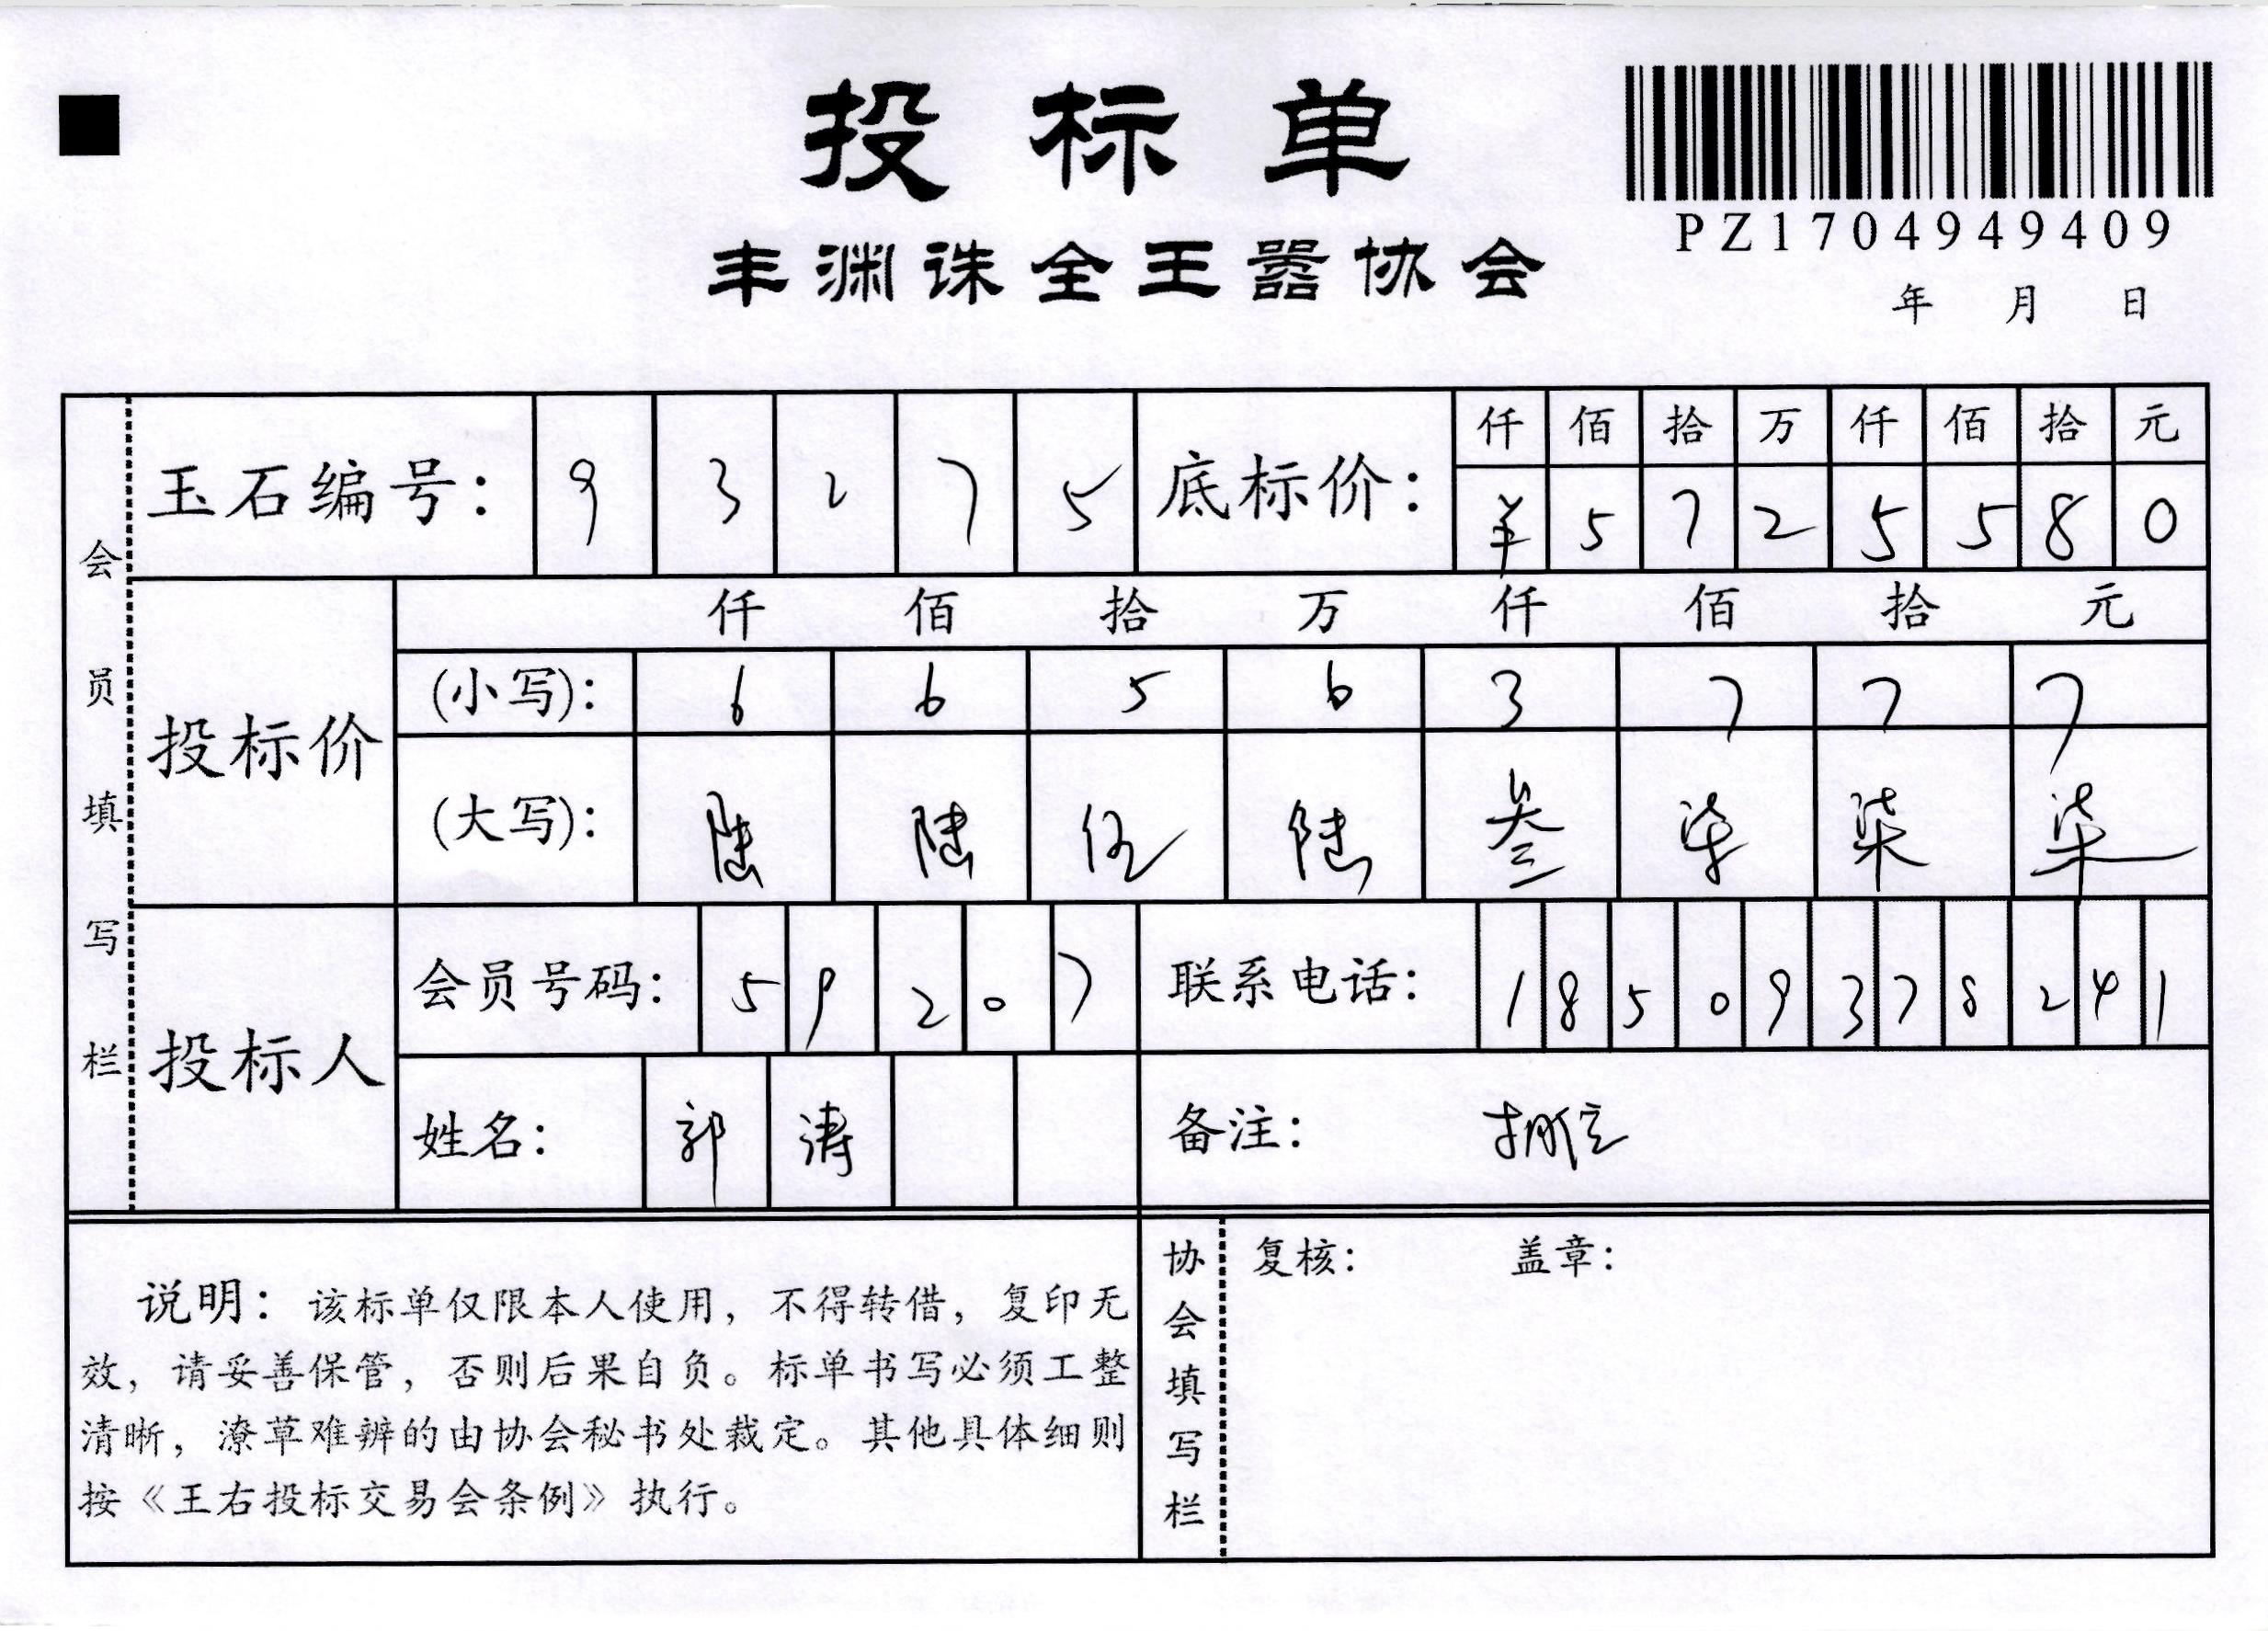 投标单
PZ1704949409
丰渊诛全王嚣协会
年 月 日
会员填写栏
玉石编号: 9 3 2 7 5
底标价:
仟 佰 拾 万 仟 佰 拾 元
¥ 5 7 2 5 5 8 0
投标价
仟 佰 拾 万 仟 佰 拾 元
(小写): 6 6 5 6 3 7 7 7
(大写): 陆 陆 伍 陆 叁 柒 柒 柒
投标人
会员号码: 5 9 2 0 7
联系电话: 1 8 5 0 9 3 7 8 2 4 1
姓名: 郭 涛
备注:
说明: 该标单仅限本人使用, 不得转借, 复印无
效, 请妥善保管, 否则后果自负。标单书写必须工整
清晰, 潦草难辨的由协会秘书处裁定。其他具体细则
按《王右投标交易会条例》执行。
协会填写栏
复核: 盖章: